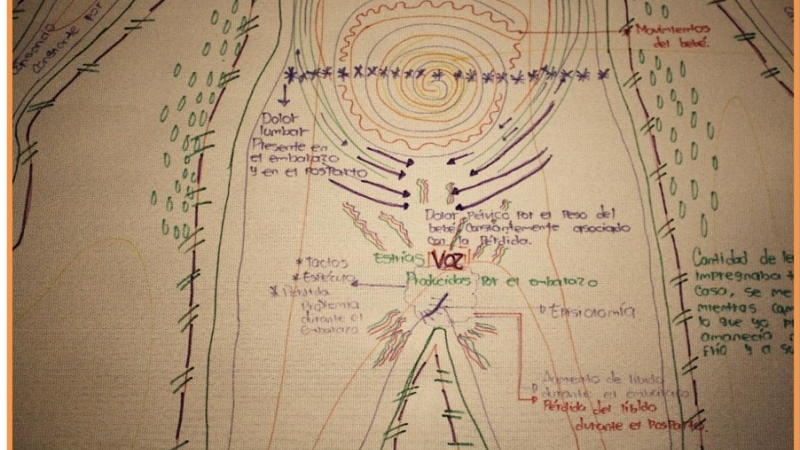 Constante por
Movimientos
del bebé.
Dolor
lumbar
Presente en
el embarazo
y en el PosParto
Dolor Pélvico Por el Peso del
bebé. Constantemente asociado
con la Pérdida.
Estrías VOZ
Producidas Por el embarazo
* Tactos
* Espéculo
* Pérdida
Problema
durante el
Embarazo
Episiotomía
Aumento de libido
durante el embarazo
Pérdida del libido
durante el PosParto.
Cantidad de le
impregnaba t
Casa, se me
mientras cam
lo que yo p
amanecía
frío y a su